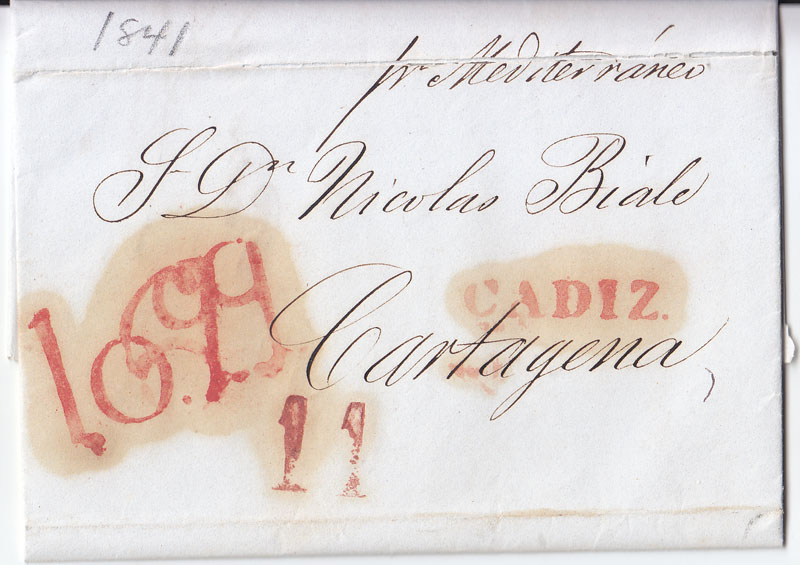 1841
pr Mediterráneo
Sr Dn Nicolas Biale
CADIZ.
Cartagena
11